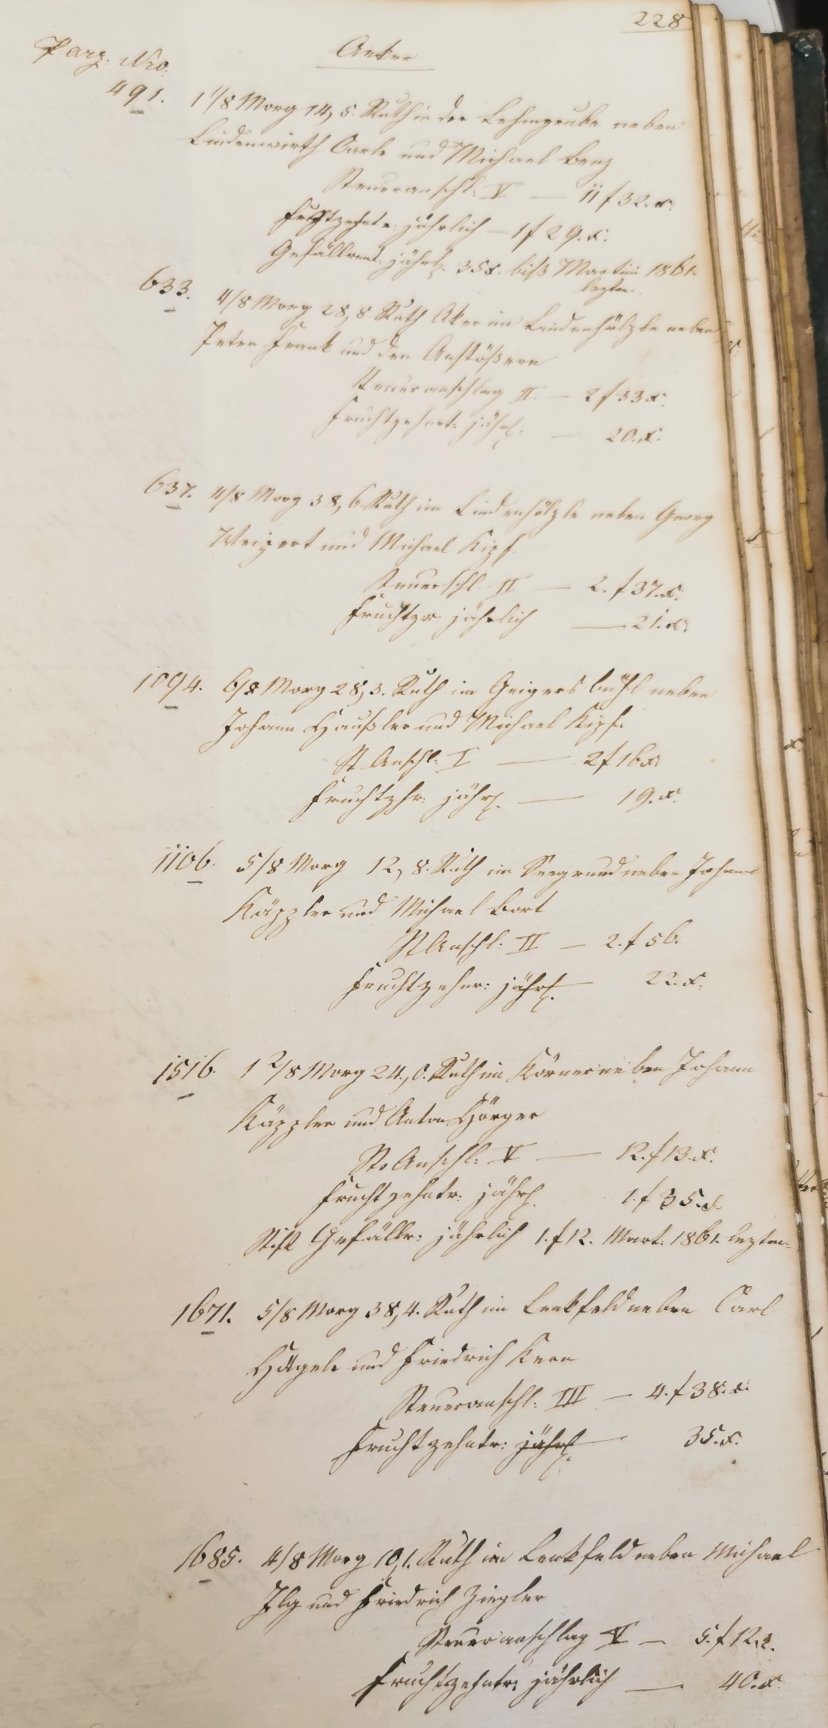 228
Parz. Nro. Aeker
491. 1 1/8 Morg 14,5. Ruth in der Lehmgrube neben
Lindenwirth Carle und Michael Benz
Steueranschl: V — 11 f 32. x.
Fruchtzehntr: jährlich — 1 f 29. x.
Gefällrent. jährl. 35 x. biß Martini 1861.
leztm.
633. 4/8 Morg 28,8 Ruth Aker im Lindenhölzle neben
Peter Frank und den Anstößern
Steueranschlag II. — 2 f 33 x.
Fruchtzehnt: jährl. — 20. x.
637. 4/8 Morg 38,6 Ruth im Lindenhölzle neben Georg
Weipert und Michael Kipf
Steueranschl. II — 2. f 37. x.
Fruchtzr. jährlich — 21. x.
1094. 6/8 Morg 28,3. Ruth im Geigersbühl neben
Johann Haußler und Michael Kipf.
St. Anschl. I — 2 f 16 x.
Fruchtzhr. jährl. — 19. x.
1106. 5/8 Morg 12,8. Ruth im Seegrund neben Johann
Käppler und Michael Bort
St Anschl: II — 2. f 56.
Fruchtzehnr: jährl. — 22. x.
1516 1 2/8 Morg 24,0. Ruth im Körner neben Johann
Käppler und Anton Hörger
St. Anschl. V — 12. f 13. x.
Fruchtzehntr. jährl. 1. f 35. x
Stift Gefällr: jährlich 1. f 12. Mart. 1861. leztm.
1671. 5/8 Morg 38,4. Ruth im Lenkfeld neben Carl
Hägele und Friedrich Kern
Steueranschl: III — 4. f 38. x.
Fruchtzehntr: jährl. — 35. x.
1685. 4/8 Morg 10,1. Ruth im Lenkfeld neben Michael
Ilg und Friedrich Ziegler
Steueranschlag V — 5. f 12 x.
Fruchtzehntr: jährlich — 40. x.